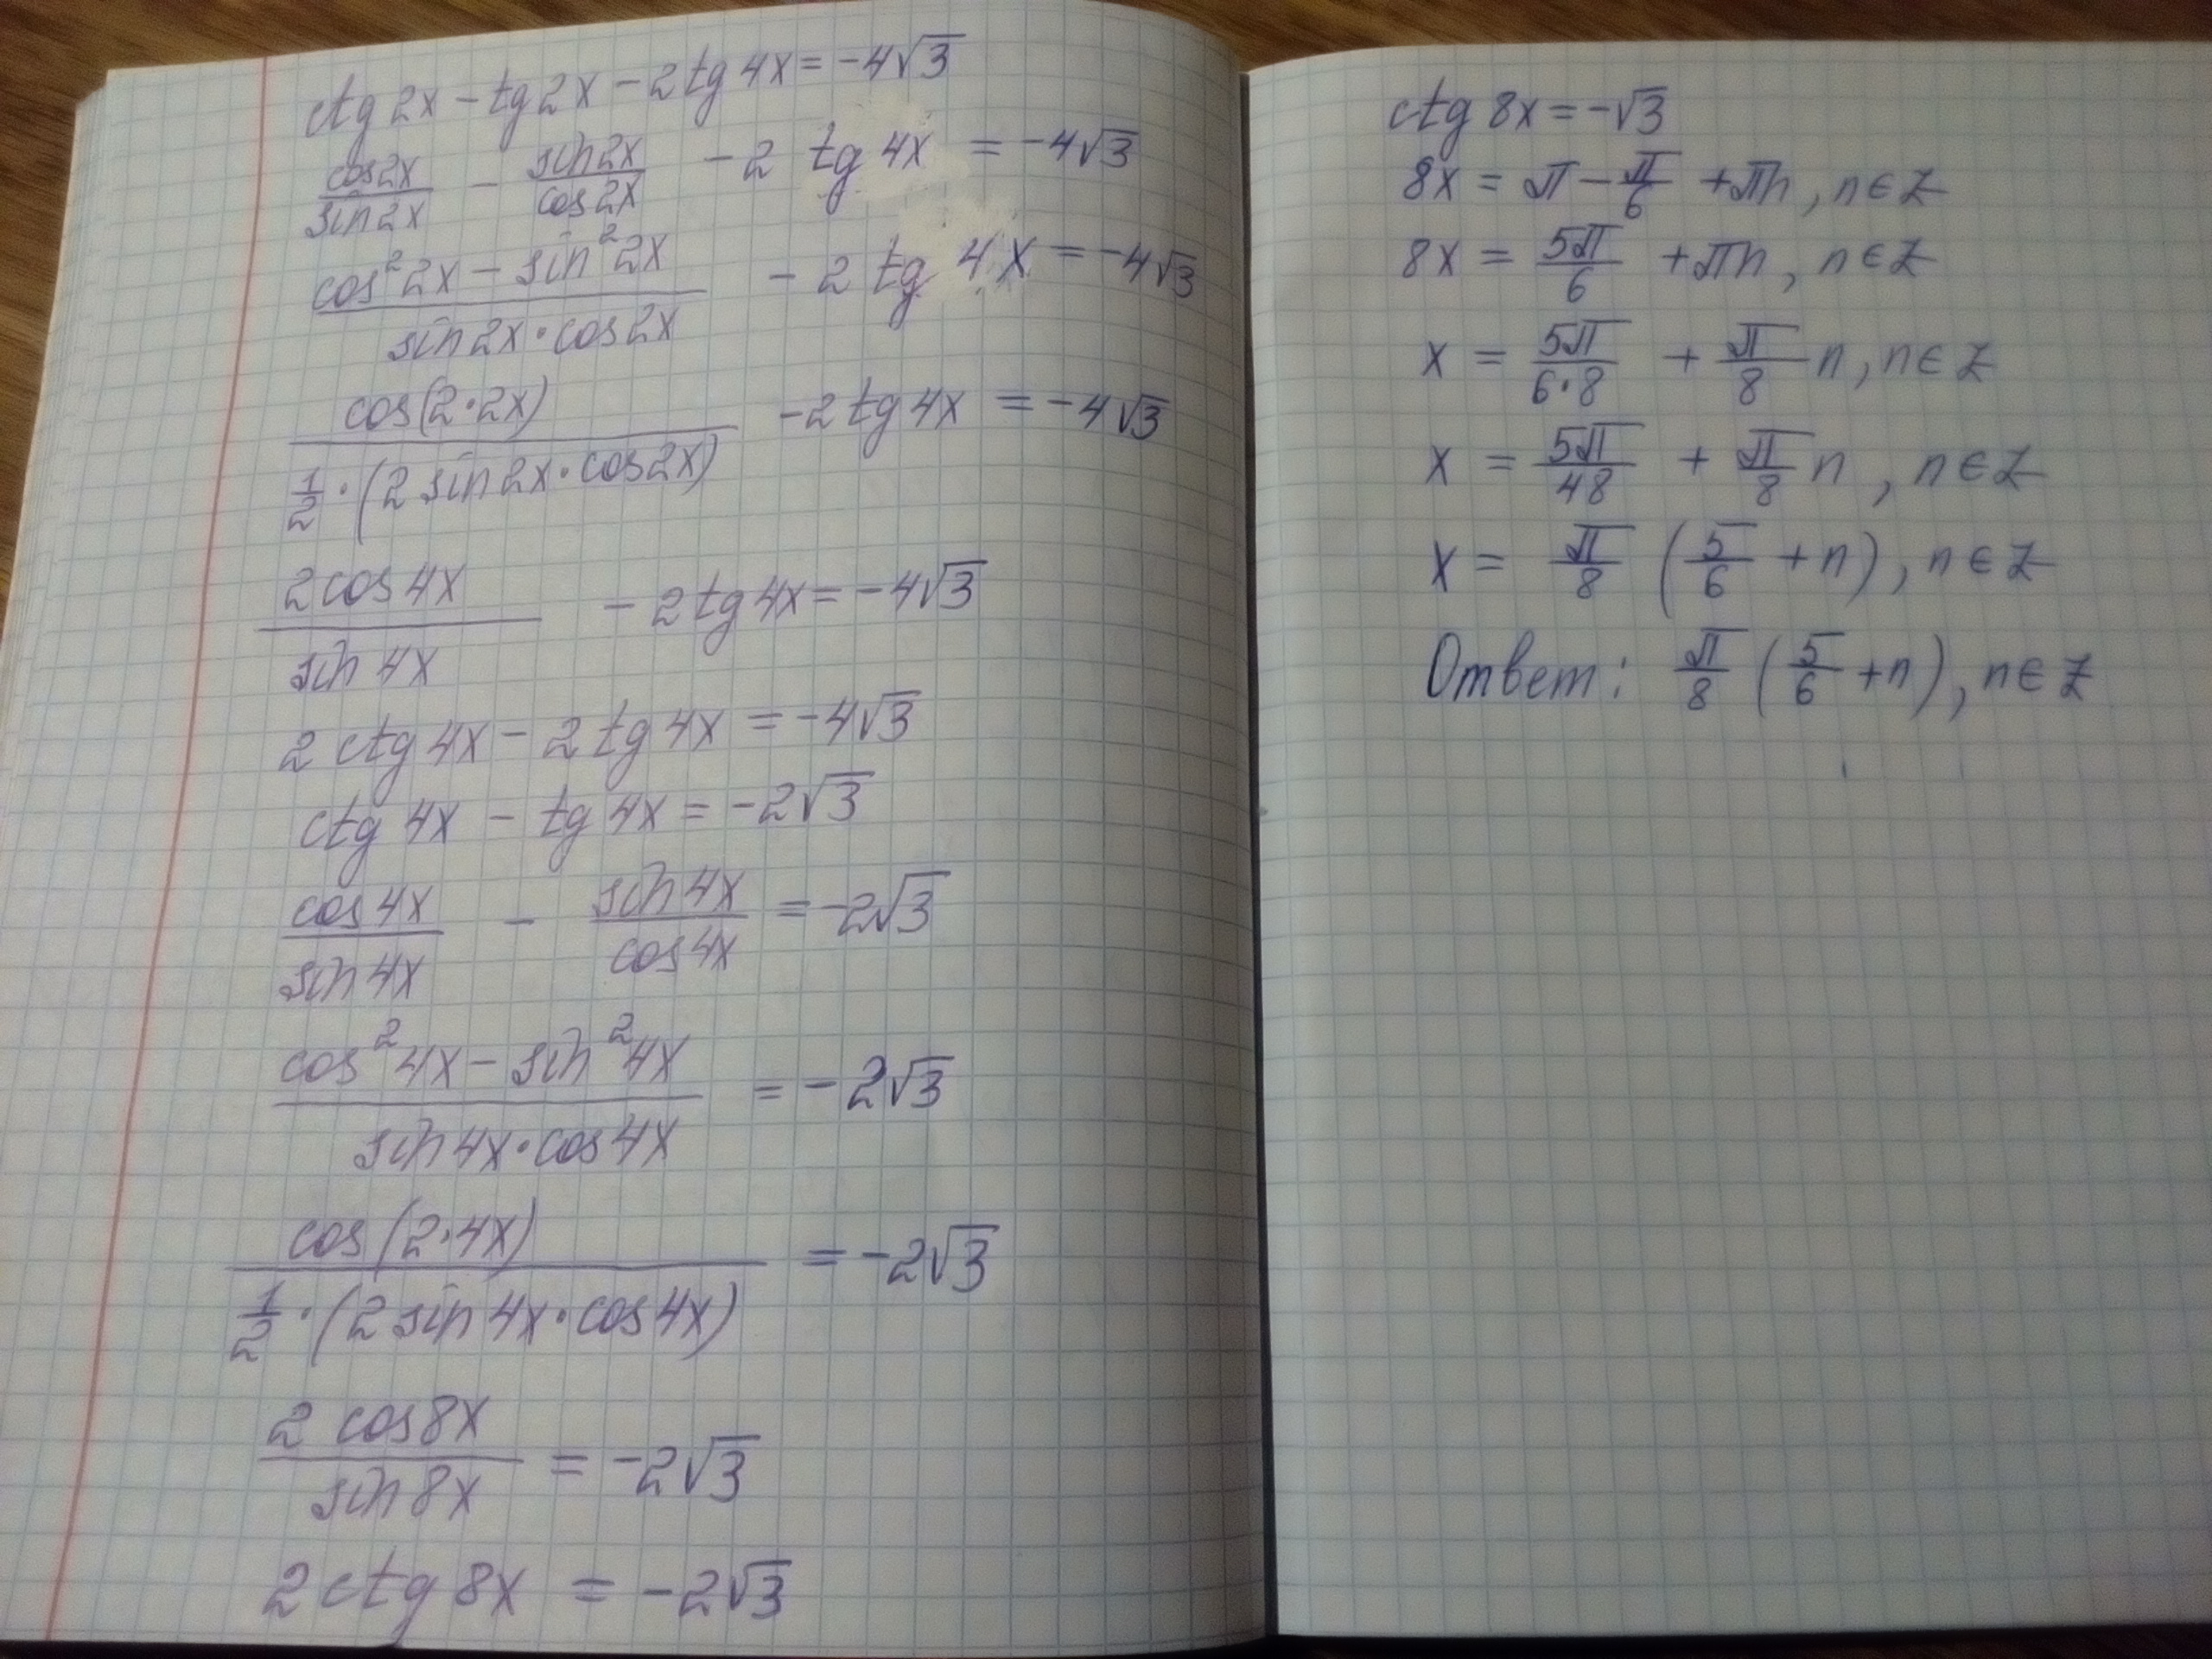 ctg 2x - tg 2x - 2 tg 4x = -4√3
cos2x/sin2x - sin2x/cos2x - 2 tg 4x = -4√3
(cos² 2x - sin² 2x)/(sin 2x · cos 2x) - 2 tg 4x = -4√3
cos(2·2x)/(1/2 · (2 sin 2x · cos 2x)) - 2 tg 4x = -4√3
2 cos 4x/sin 4x - 2 tg 4x = -4√3
2 ctg 4x - 2 tg 4x = -4√3
ctg 4x - tg 4x = -2√3
cos 4x/sin 4x - sin 4x/cos 4x = -2√3
(cos² 4x - sin² 4x)/(sin 4x · cos 4x) = -2√3
cos(2·4x)/(1/2 · (2 sin 4x · cos 4x)) = -2√3
2 cos 8x/sin 8x = -2√3
2 ctg 8x = -2√3
ctg 8x = -√3
8x = π - π/6 + πn, n ∈ Z
8x = 5π/6 + πn, n ∈ Z
x = 5π/(6·8) + π/8 n, n ∈ Z
x = 5π/48 + π/8 n, n ∈ Z
x = π/8 (5/6 + n), n ∈ Z
Ответ: π/8 (5/6 + n), n ∈ Z